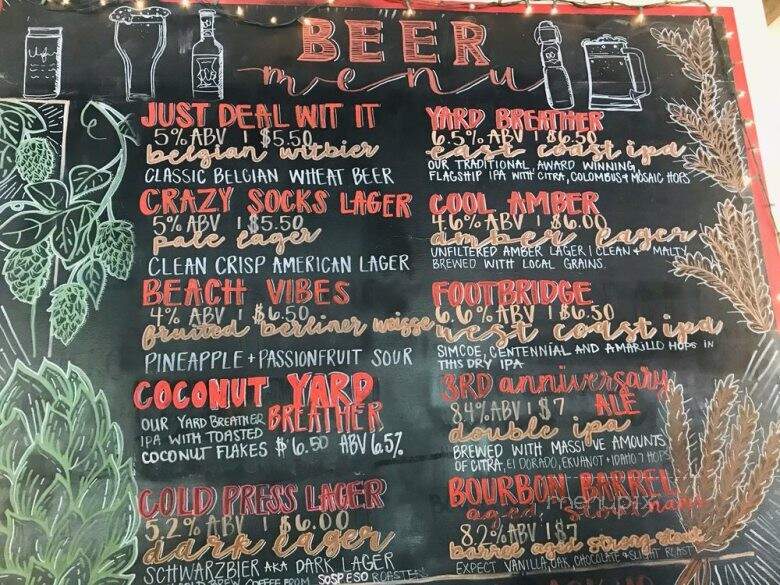 BEER
menu
JUST DEAL WIT IT
5% ABV | $5.50
belgian witbier
CLASSIC BELGIAN WHEAT BEER
CRAZY SOCKS LAGER
5% ABV | $5.50
pale lager
CLEAN CRISP AMERICAN LAGER
BEACH VIBES
4% ABV | $6.50
fruited berliner weisse
PINEAPPLE + PASSIONFRUIT SOUR
COCONUT YARD
BREATHER
OUR YARD BREATHER
IPA WITH TOASTED
COCONUT FLAKES $6.50 ABV 6.5%
COLD PRESS LAGER
5.2% ABV | $6.00
dark lager
SCHWARZBIER AKA DARK LAGER
COLD BREW COFFEE FROM SOSPESO ROASTERS
YARD BREATHER
6.5% ABV | $6.50
east coast ipa
OUR TRADITIONAL, AWARD WINNING,
FLAGSHIP IPA WITH CITRA, COLOMBUS + MOSAIC HOPS
COOL AMBER
4.6% ABV | $6.00
amber lager
UNFILTERED AMBER LAGER | CLEAN + MALTY
BREWED WITH LOCAL GRAINS.
FOOTBRIDGE
6.6% ABV | $6.50
west coast ipa
SIMCOE, CENTENNIAL AND AMARILLO HOPS IN
THIS DRY IPA
3RD anniversary
ALE
8.4% ABV | $7
double ipa
BREWED WITH MASSIVE AMOUNTS
OF CITRA, El DORADO, EKUANOT + IDAHO 7 HOPS
BOURBON BARREL
aged
8.2% ABV | $7
barrel aged strong stout
EXPECT VANILLA, OAK, CHOCOLATE + SLIGHT ROAST